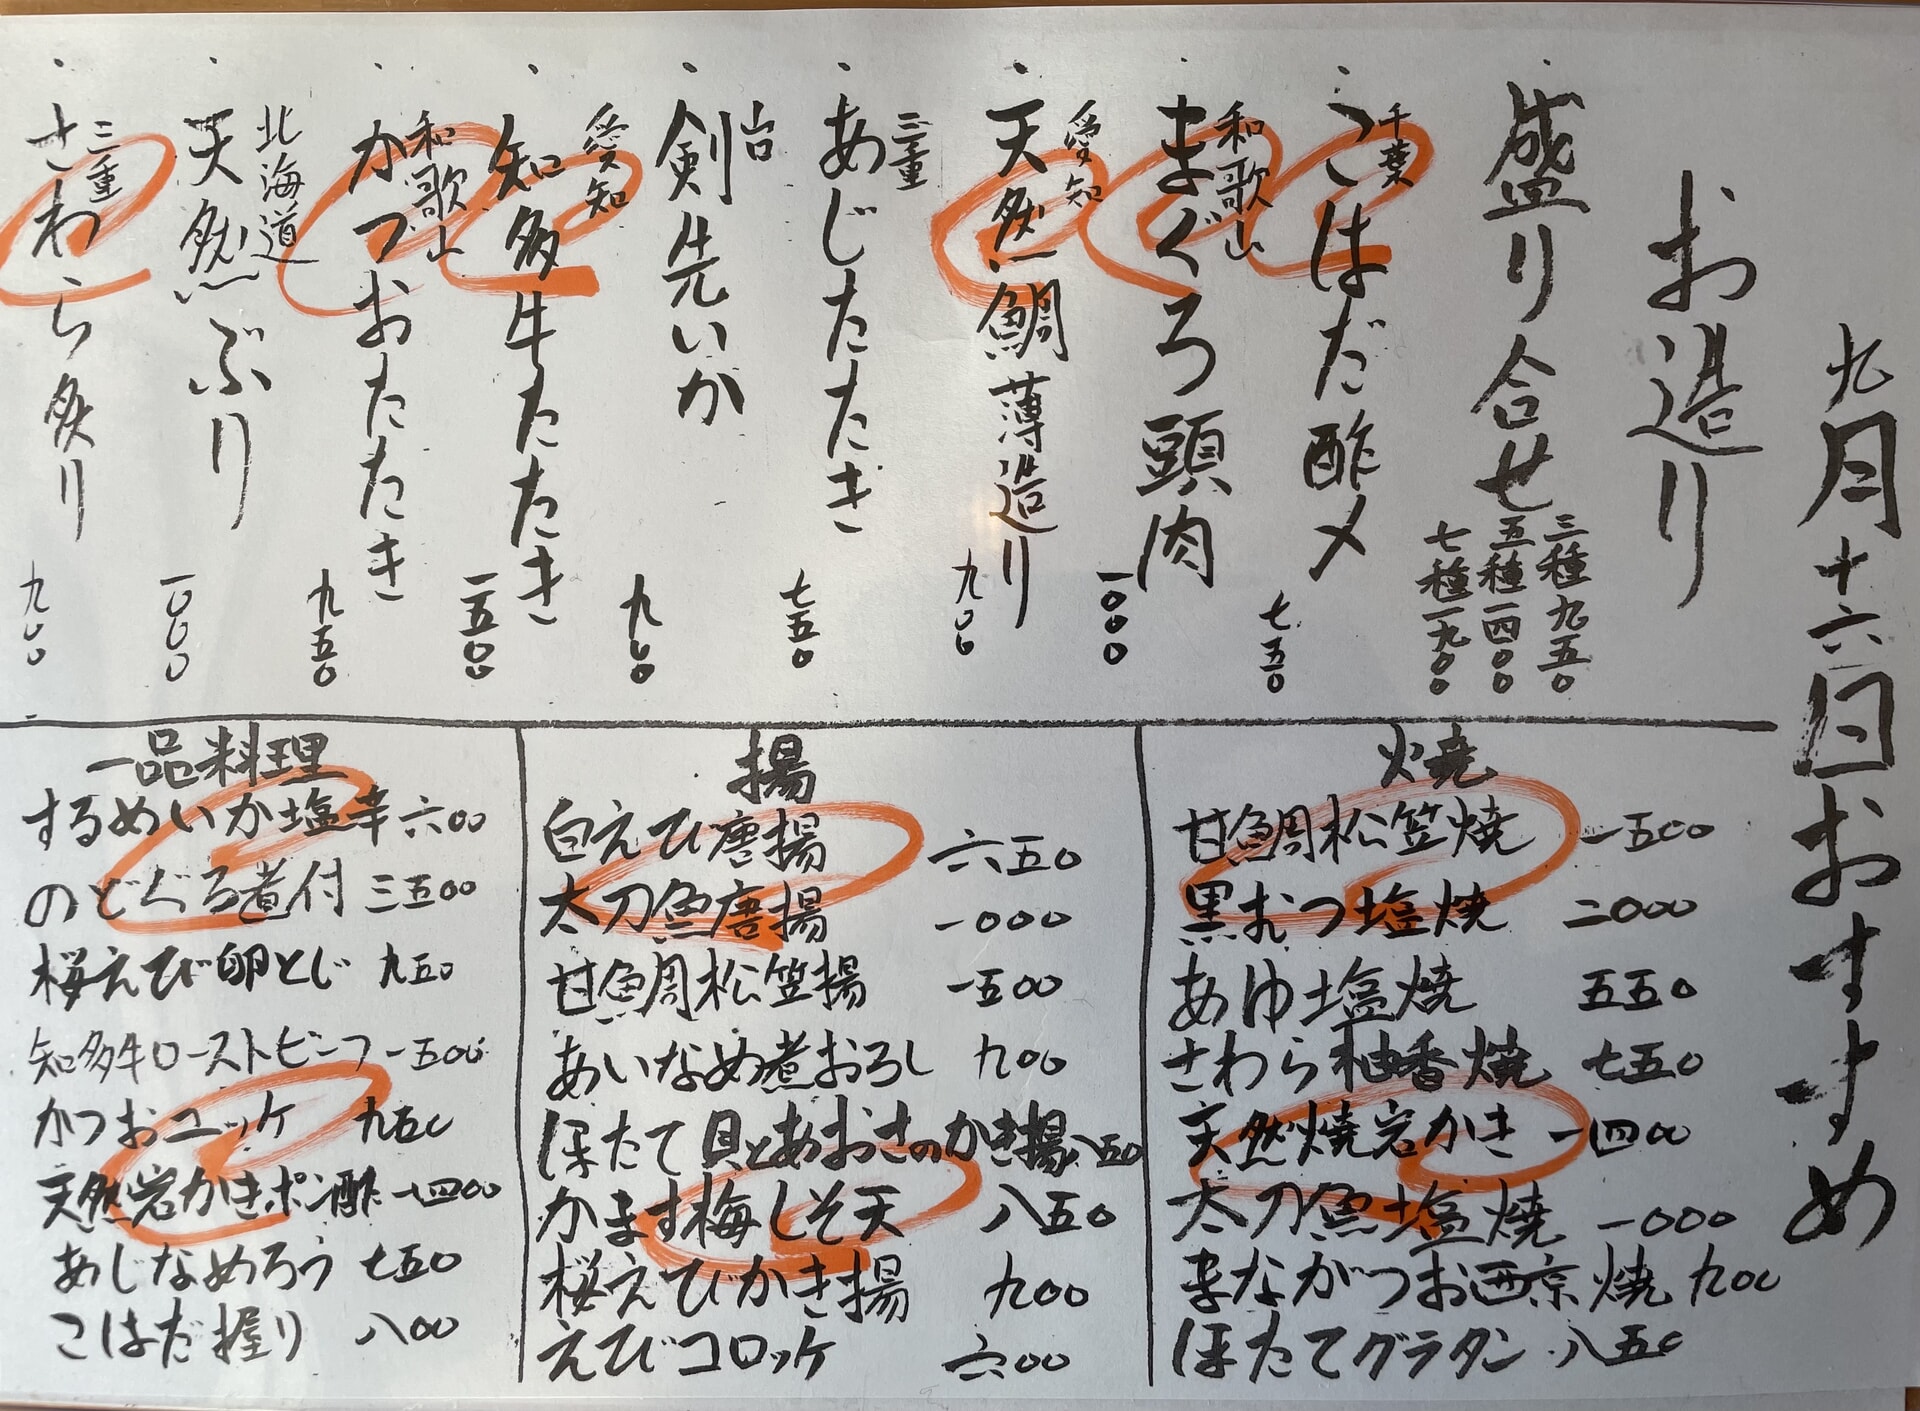 九月十六日おすすめ
お造り
・盛り合せ
三種 九五〇
五種 一四〇〇
七種 一九〇〇
・千葉 こはだ酢〆 七五〇
・和歌山 まぐろ頭肉 一〇〇〇
・愛知 天然鯛薄造り 九〇〇
・三重 あじたたき 七五〇
・剣先いか 九〇〇
・愛知 知多牛たたき 一五〇〇
・和歌山 かつおたたき 九五〇
・北海道 天然ぶり 一〇〇〇
・三重 さわら炙り 九〇〇
焼
甘鯛松笠焼 一五〇〇
黒むつ塩焼 二〇〇〇
あゆ塩焼 五五〇
さわら柚香焼 七五〇
天然焼岩かき 一四〇〇
太刀魚塩焼 一〇〇〇
まながつお西京焼 九〇〇
ほたてグラタン 八五〇
揚
白えび唐揚 六五〇
太刀魚唐揚 一〇〇〇
甘鯛松笠揚 一五〇〇
あいなめ煮おろし 九〇〇
ほたて貝とあおさのかき揚 八五〇
かます梅しそ天 八五〇
桜えびかき揚 九〇〇
えびコロッケ 六〇〇
一品料理
するめいか塩辛 六〇〇
のどぐろ煮付 三五〇〇
桜えび卵とじ 九五〇
知多牛ローストビーフ 一五〇〇
かつおユッケ 九五〇
天然岩かきポン酢 一四〇〇
あじなめろう 七五〇
こはだ握り 八〇〇